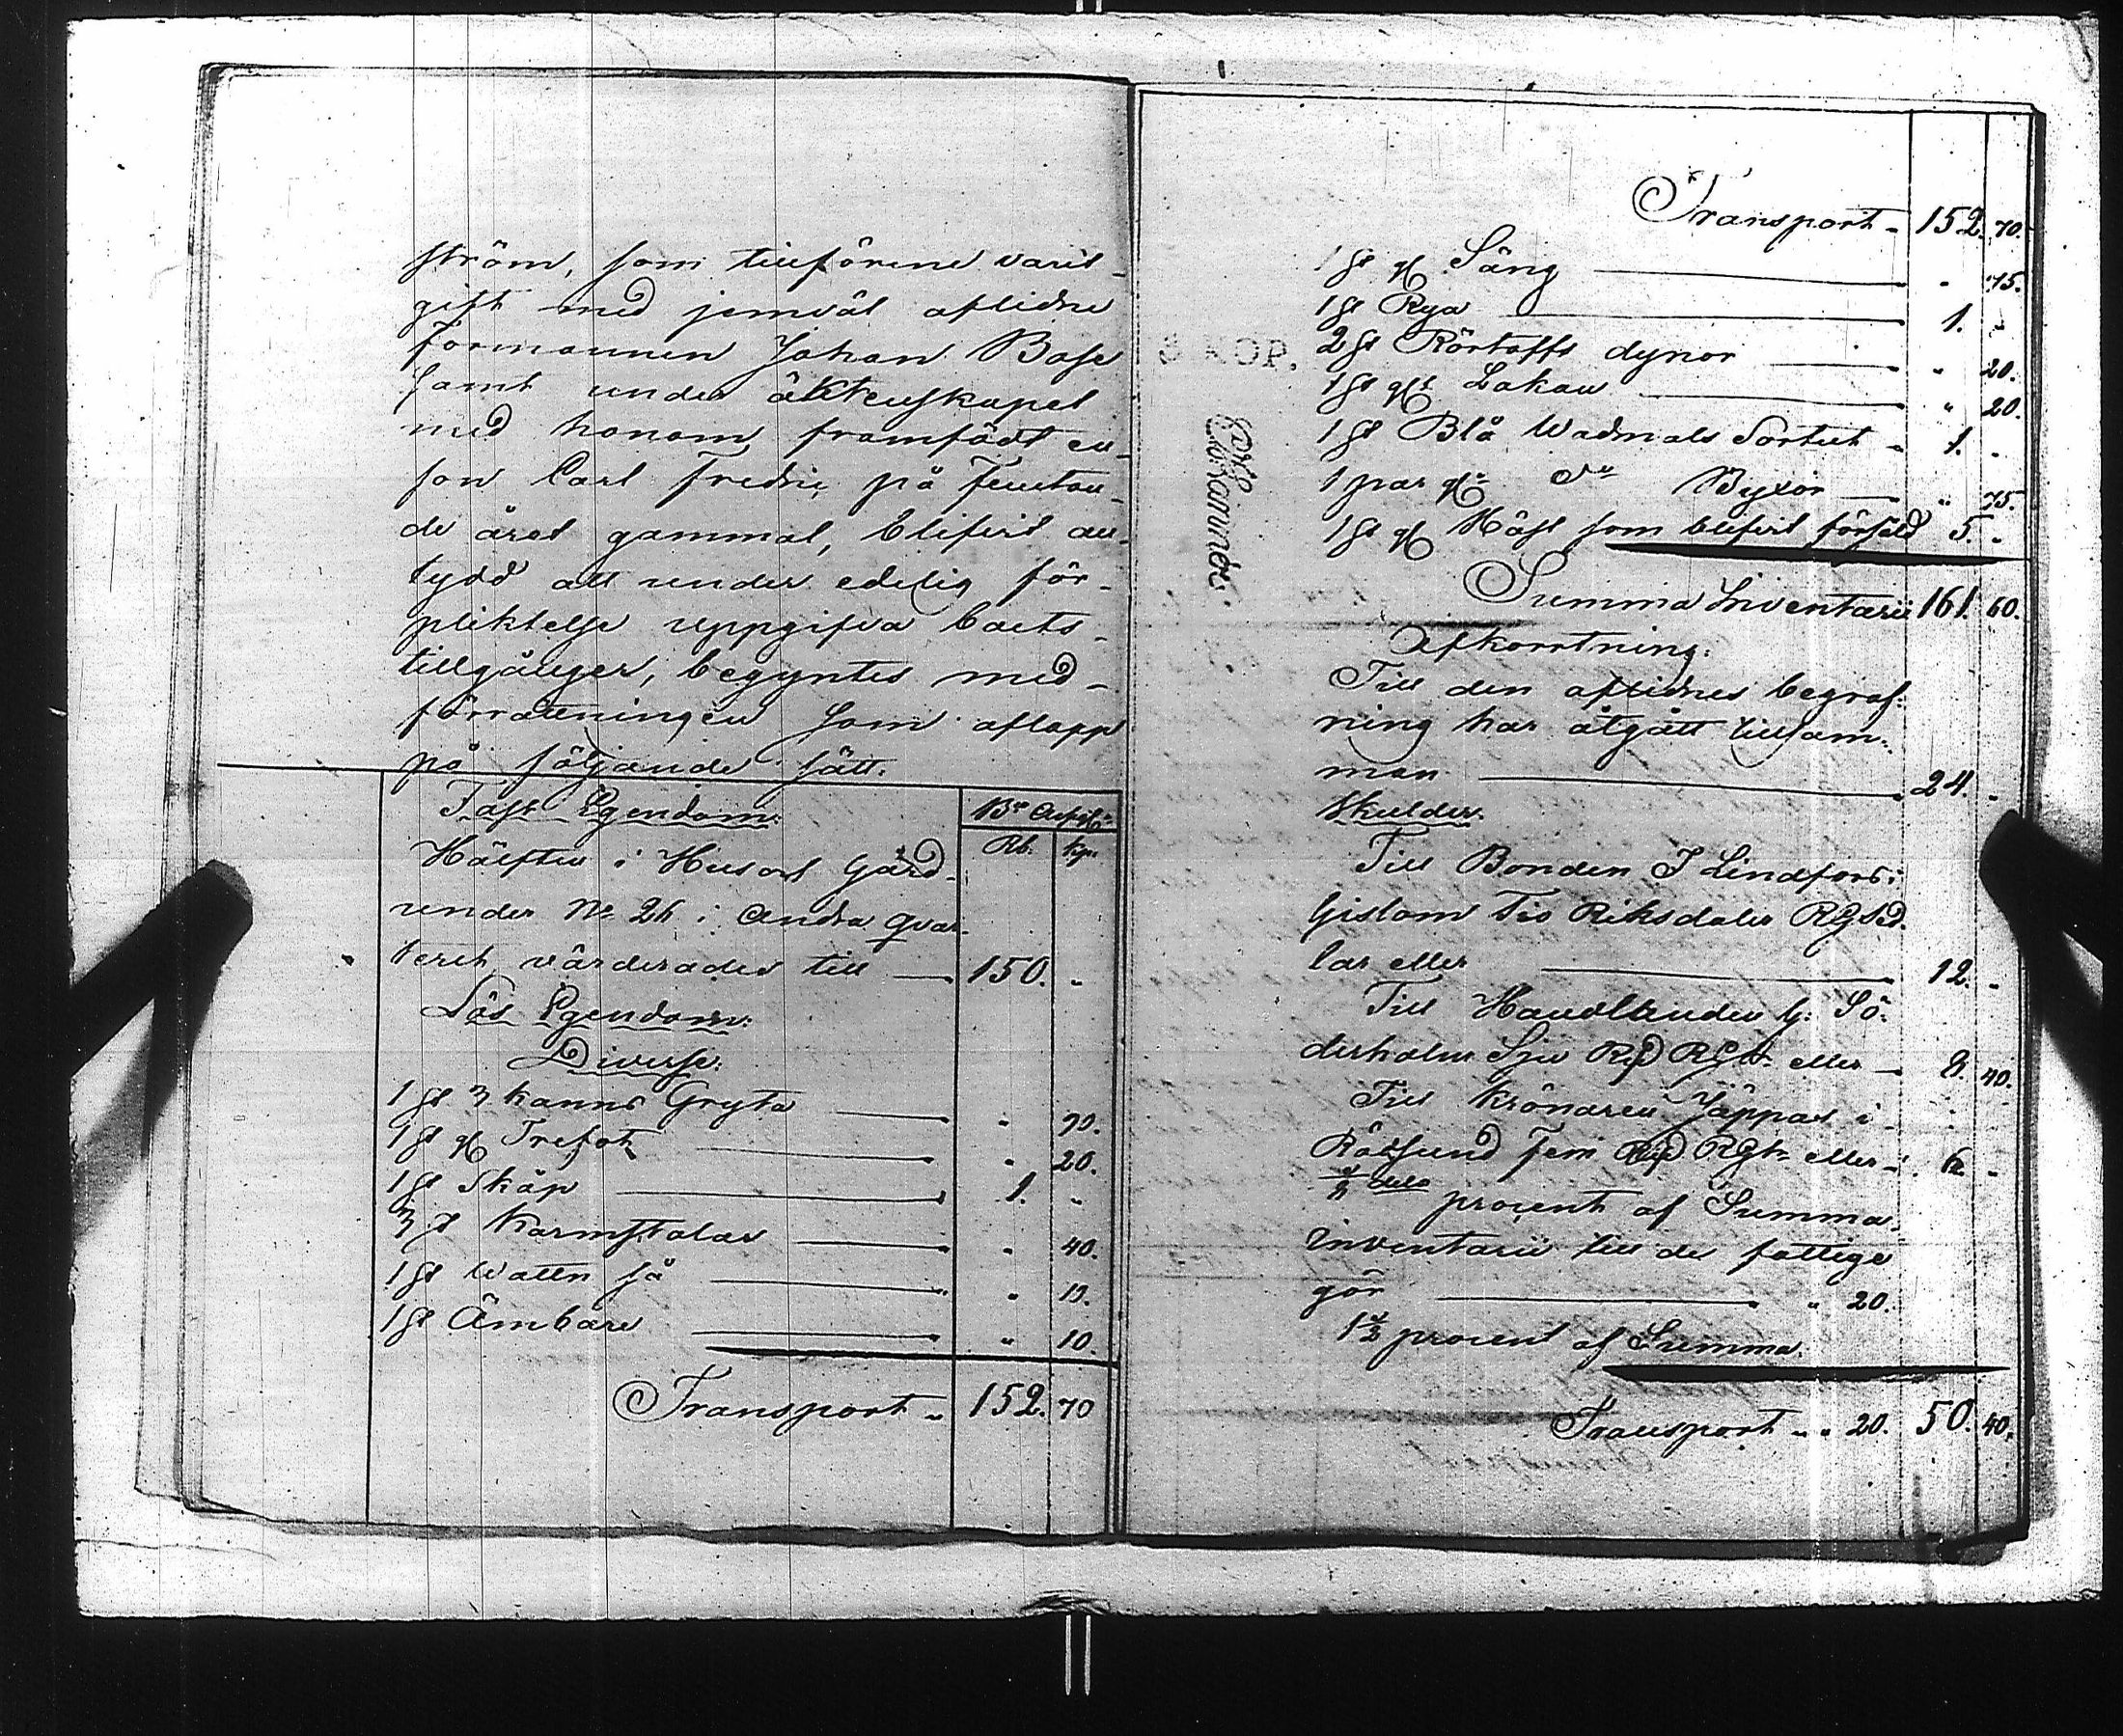 ström, som tillförene varit
gift med jemväl aflidne
Formannen Johan Base
samt under äktenskapet
med honom framfödt en
son Carl Fredric på femton-
de året gammal, blifvit an-
tydd att under edelig för-
pliktelse uppgifva boets
tillgånger, begyntes med
förrättningen som aflopp
på följande sätt.
Fast Egendom.
Rb. kop.
Hälften i Hus och Gård
under No 26 i Andra qvar-
teret värderades till — 150. "
Lös Egendom.
Diverse.
1 st 3 kanns Gryta — " 90.
1 st gl Trefot — " 20.
1 st Skåp — 1. "
3 st Karmstolar — " 40.
1 st Watten så — " 10.
1 st Ämbare — " 10.
Transport - 152. 70
Transport - 152. 70.
1 st gl Säng — " 75.
1 st Rya — 1. "
2 st Rörtofts dynor — " 20.
1 st gt Lakan — " 20.
1 st Blå Wadmals Sortut - 1. "
1 par gl Do Byxor — " 75.
1 st gl Häst som blifvit försåld 5. "
5 KOP.
Summa Inventarii 161. 60.
Afkorrtning.
Till den aflidnes begraf-
ning har åtgått tillsam-
man — 24. "
Skulder.
Till Bonden J Lindfors i
Gislom Tio Riksdaler RGSed
lar eller — 12. "
Till Handlanden G. Sö-
derholm Sju Rd RGds eller — 8. 40.
Till Krönaren Jäppas i
Rödsund Fem Rd RGds eller — 6. "
1/8 dels procent af Summa
Inventarii till de fattige
gör — " 20.
1 1/2 procent af Summa
Transport - " 20. 50. 40.